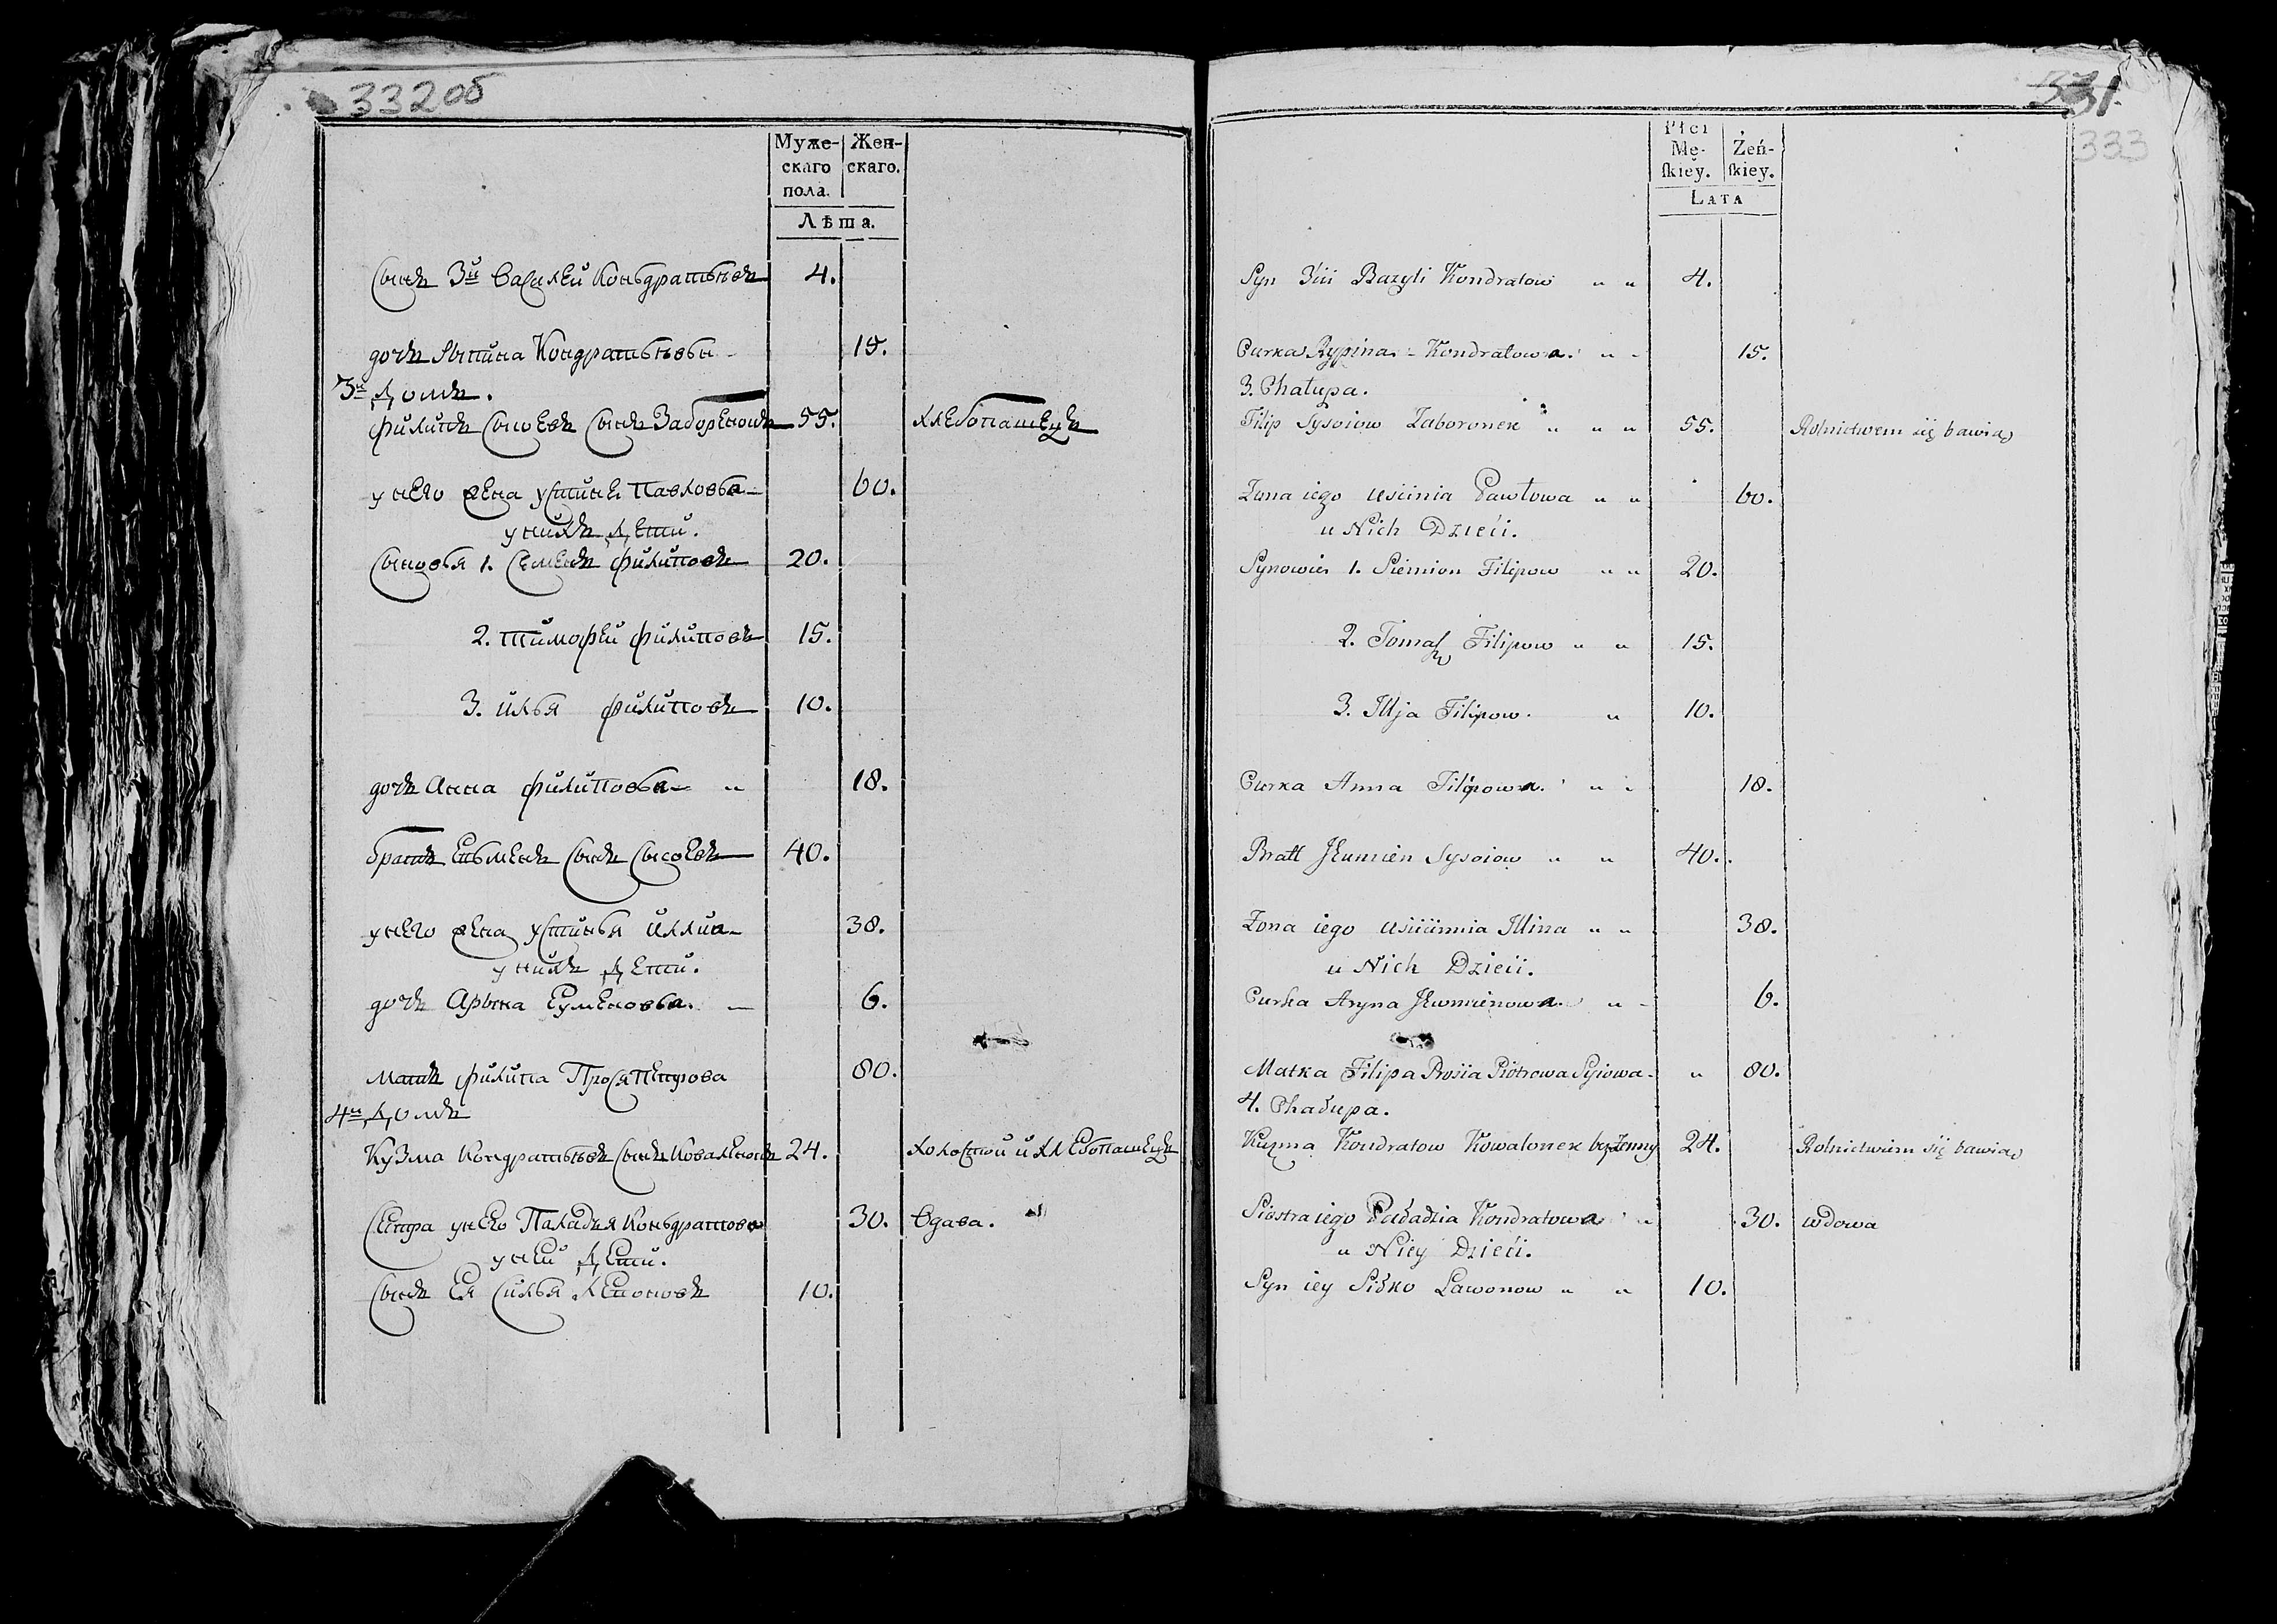 332об
Муже-
скаго
пола.
Жен-
скаго.
Лѣта.
Сынъ 3й Василей Кондратьевъ 4.
дочь Рыпина Кондратьева 15.
3й Домъ.
Филипъ Сысоевъ Сынъ Заборенокъ 55. хлебопашецъ
у него жена Устинья Павлова 60.
у нихъ Дети.
Сыновья 1. Семенъ Филиповъ 20.
2. Тимофей Филиповъ 15.
3. Илья Филиповъ 10.
дочь Анна Филипова „ 18.
братъ Сынъ Сысоевъ 40.
у него жена Устинья 38.
у нихъ Дети.
дочь Арына Еуменова. 6.
мать Филипа Прося Петрова 80.
4й Домъ
Кузма Кондратьевъ Сынъ Коваленокъ 24. холостой и хлебопашецъ
Сестра у него Паладья Кондратова 30. вдова.
у ней Дети.
Сынъ ея Силья Леоновъ 10.
531.
333
Płci
Mę-
ſkiey.
Żeń-
ſkiey.
Lata
Syn 3ci Bazyli Kondratow „ „ 4.
Curka Rypina Kondratowa „ 15.
3. Chałupa.
Filip Sysoiow Zaboronek „ „ „ 55. Rolnictwem się bawią
Żona iego Pawłowa „ „ 60.
u Nich Dzieci.
Synowie 1. Siemion Filipow „ „ 20.
2. Tomaſz Filipow „ „ 15.
3. Illja Filipow. „ 10.
Curka Anna Filipowa. „ 18.
Bratt Sysoiow „ „ 40.
Żona iego Illina „ „ 38.
u Nich Dzieci.
Curka Aryna „ 6.
Matka Filipa Prosia Piotrowa Sysiowa „ 80.
4. Chałupa.
Kuzma Kondratow Kowalonek bezżenny 24. Rolnictwem się bawią
Siostra iego Paładzia Kondratowa „ 30. wdowa
u Niey Dzieci.
Syn iey Siłko Lawonow „ „ 10.